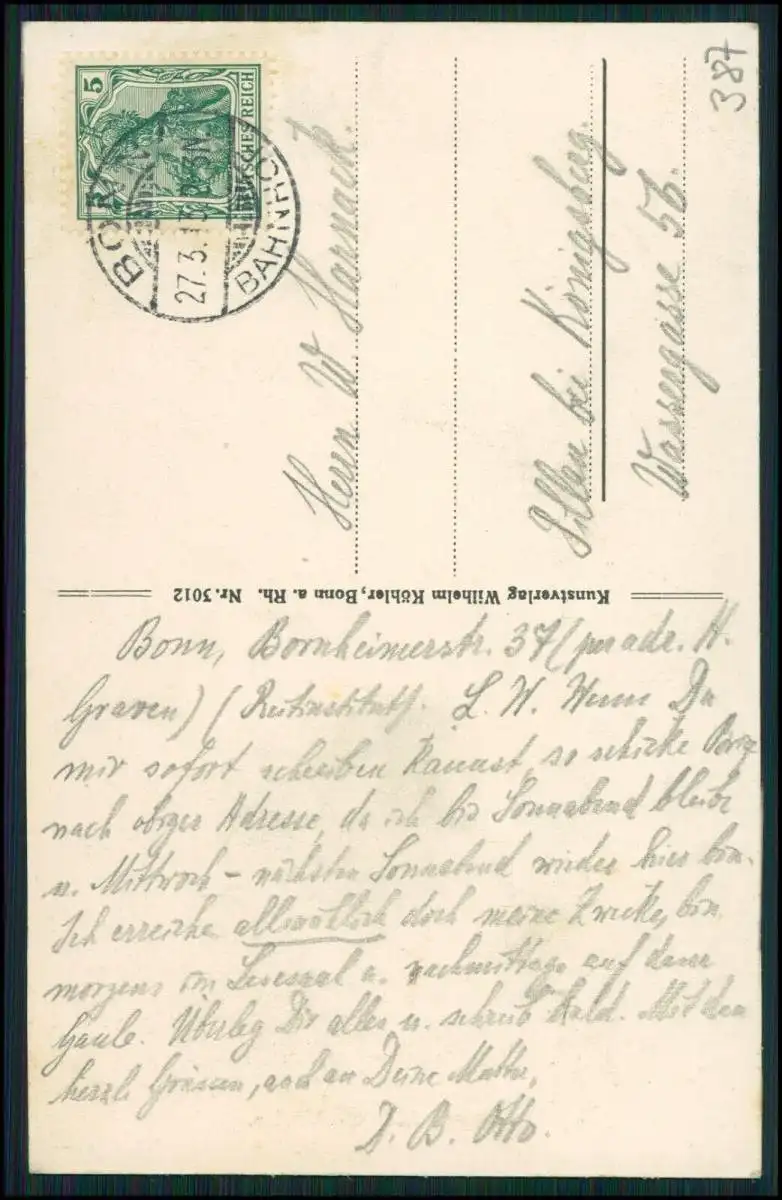 387
5
DEUTSCHES REICH
BONN
27.3.
BAHNHOF
Herrn W. Harnack.
bei Königsberg.
Wassergasse 5b.
Kunstverlag Wilhelm Köhler, Bonn a. Rh. Nr. 3012
Bonn, Bornheimerstr. 37 (per adr. H.
Graven) (Reitinstitut). L. W. Wenn Du
mir sofort schreiben kannst, so schicke
nach obiger Adresse, da ich bis Sonnabend bleibe
u. Mittwoch – nächsten Sonnabend wieder hier bin.
Ich erreiche allmählich doch meine Zwecke, bin
morgens im Lesesaal u. nachmittags auf dem
Gaule. Überleg Dir alles u. schreib bald. Mit den
herzl. Grüssen, auch an Deine Mutter,
D. B. Otto.